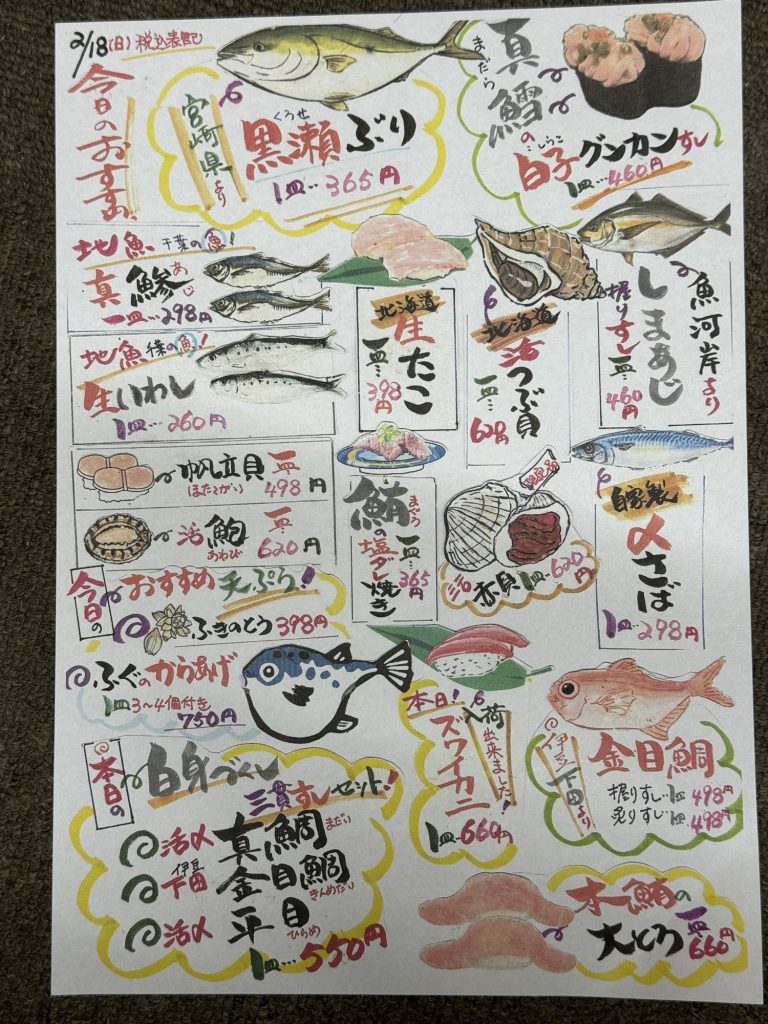 2/18(日)税込表記
今日のおすすめ
宮崎県より
くろせ
黒瀬ぶり
1皿…365円
まだら
真鱈の
しらこ
白子グンカンすし
1皿…460円
地魚 千葉の魚!
真鯵
あじ
一皿…298円
地魚
の魚!
生いわし
1皿…260円
北海道
生たこ
一皿…398円
北海道
活つぶ貝
一皿…628円
魚河岸より
しまあじ
握りすし一皿…460円
帆立貝 一皿
(ほたてがい) 498円
活鮑 一皿
あわび 620円
鮪の塩ダレ焼き
まぐろ
一皿…365円
活赤貝1皿…620円
自家製
〆さば
1皿…298円
今日の
おすすめ天ぷら!
ふきのとう398円
ふぐのからあげ
1皿3〜4個付き
750円
本日!入荷出来ました!
ズワイカニ
1皿…660円
伊豆下田より
金目鯛
握りすし…1皿498円
炙りすし…1皿498円
本日の
白身づくし
三貫すしセット!
活〆 真鯛 まだい
伊豆
下田 金目鯛 きんめだい
活〆 平目 ひらめ
1皿…550円
本鮪の
大とろ 一皿660円